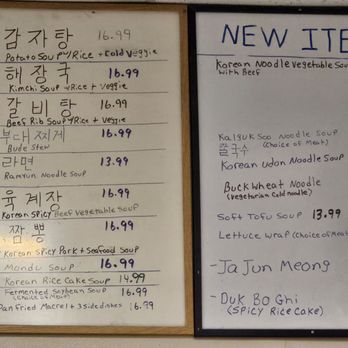 감자탕 16.99
Potato Soup w/Rice + Cold Veggie
해장국 16.99
Kimchi Soup w/Rice + Veggie
갈비탕 16.99
Beef Rib Soup w/Rice + Veggie
부대찌게 16.99
Bude Stew
라면 13.99
Ramyun Noodle Soup
육계장 16.99
Korean Spicy Beef Vegetable Soup
짬뽕 16.99
Korean Spicy Pork + Seafood Soup
Mondu Soup 16.99
Korean Rice Cake Soup 14.99
Fermented Soybean Soup 16.99
(Choice of Meat)
Pan Fried Macrel + 3 side dishes 16.99
NEW ITE
Korean Noodle Vegetable Soup
with Beef
Kalguk Soo Noodle Soup
(Choice of Meat)
칼국수
Korean Udon Noodle Soup
Buckwheat Noodle
(Vegetarian Cold noodle)
Soft Tofu Soup 13.99
Lettuce Wrap (Choice of Meat)
-Ja Jun Meong
-Duk Bo Ghi
(SPICY Rice Cake)